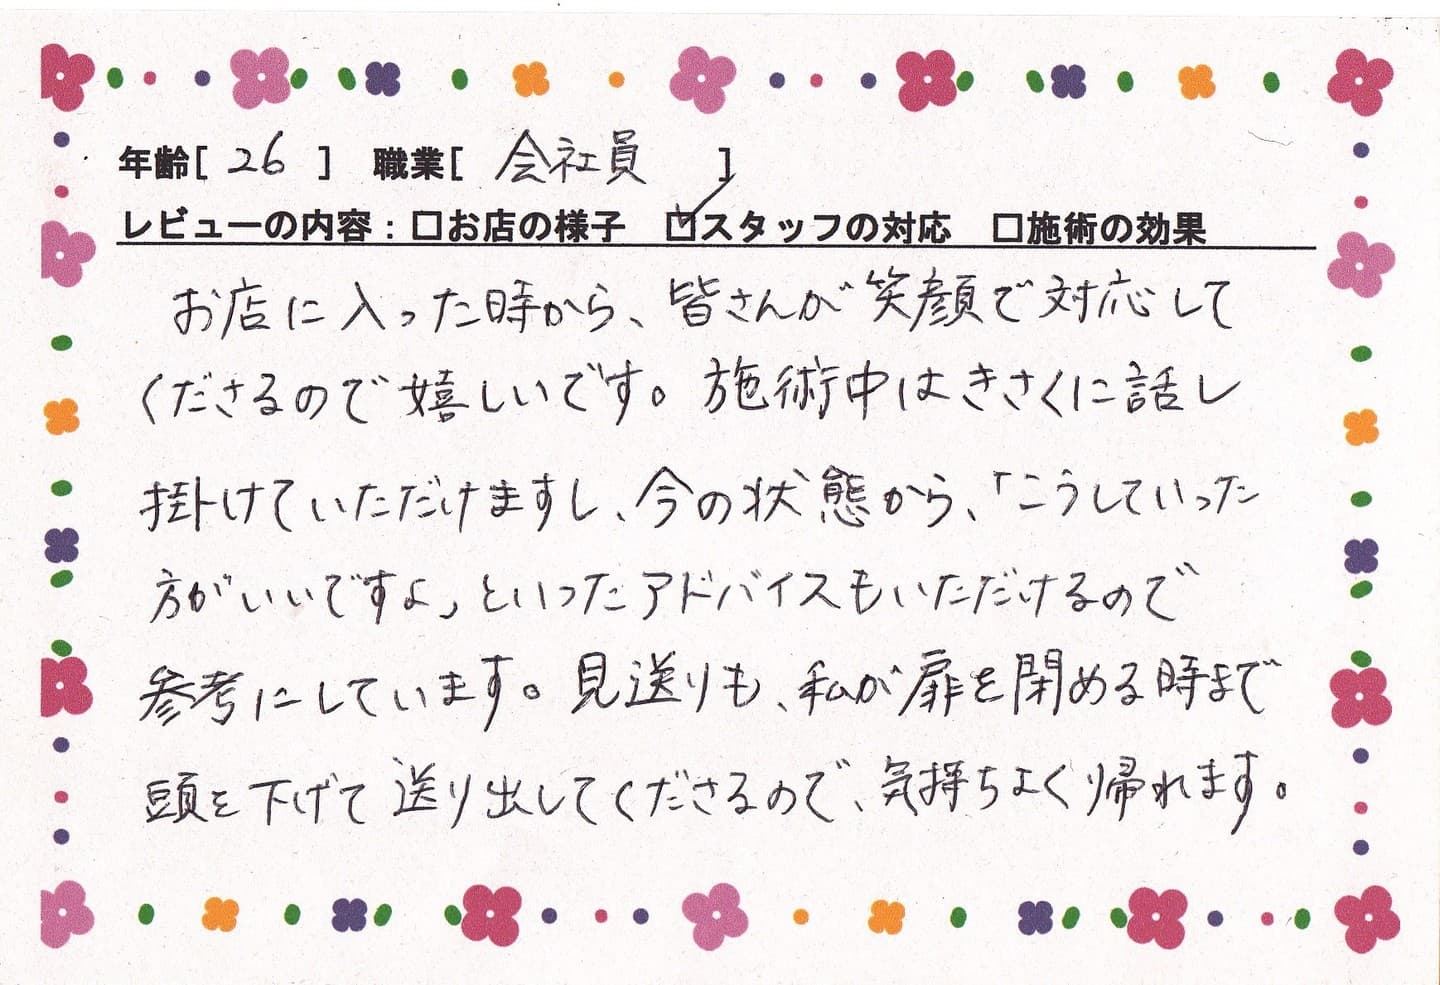 年齢[ 26 ] 職業[ 会社員 ]
レビューの内容:□お店の様子 ☑スタッフの対応 □施術の効果
お店に入った時から、皆さんが笑顔で対応して
くださるので嬉しいです。施術中はきさくに話し
掛けていただけますし、今の状態から、「こうしていった
方がいいですよ」といったアドバイスもいただけるので
参考にしています。見送りも、私が扉を閉める時まで
頭を下げて送り出してくださるので、気持ちよく帰れます。